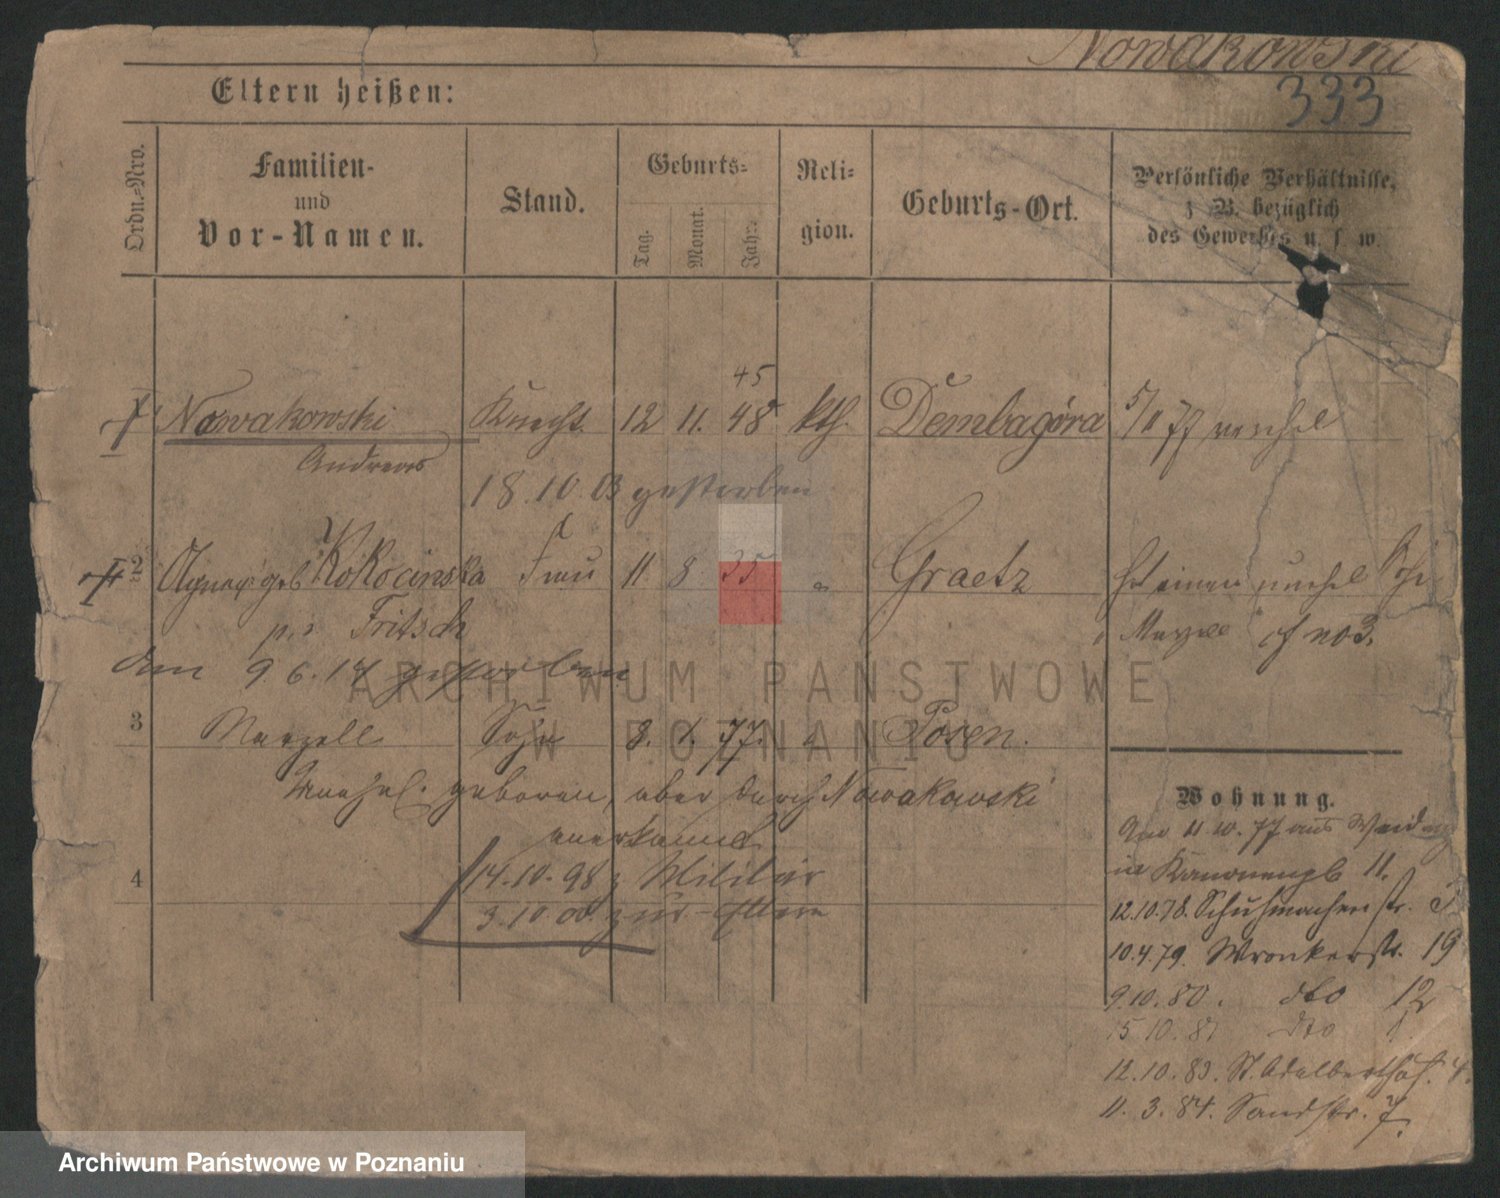 Nowakowski
333
Eltern heißen:
Ordn.-Nro.
Familien-
und
Vor-Namen.
Stand.
Geburts-
Tag.
Monat.
Jahr.
Reli-
gion.
Geburts-Ort.
Persönliche Verhältnisse,
z B. bezüglich
des Gewerbes u. s w.
45
Nowakowski Knecht 12 11. 48 kth. Dembagóra 5/11 77
Andreas
18.10.03 gestorben
2 Agnes geb Kokocinska Frau 11 8 35 " Graetz hat einen unehel
Fritsch Marzell cf no 3.
den 9 6.17 gestorben
ARCHIWUM PAŃSTWOWE
W POZNANIU
3 Marzell Sohn 8. 1. 77. " Posen.
Unehel. geboren, aber durch Nowakowski
anerkannt
4
14.10.98 z Militär
3.10 00. zur Eltern
Wohnung.
11 10. 77 aus
in Kanonenpl 11.
12.10.78. Schuhmacherstr.
10.4.79. Wronkerstr. 19
9.10.80. dto 12
15 10. 81 dto
12.10.83. St. Adalbertstr. 4.
11. 3. 84. Sandstr. 7.
Archiwum Państwowe w Poznaniu